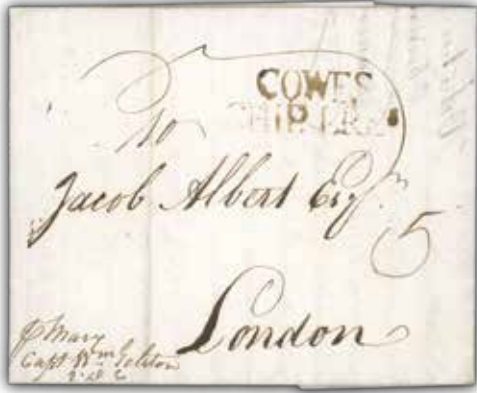 COWES
SHIP LRE
To
Jacob Albert Esqr
5
London
P Mary
Capt Wm